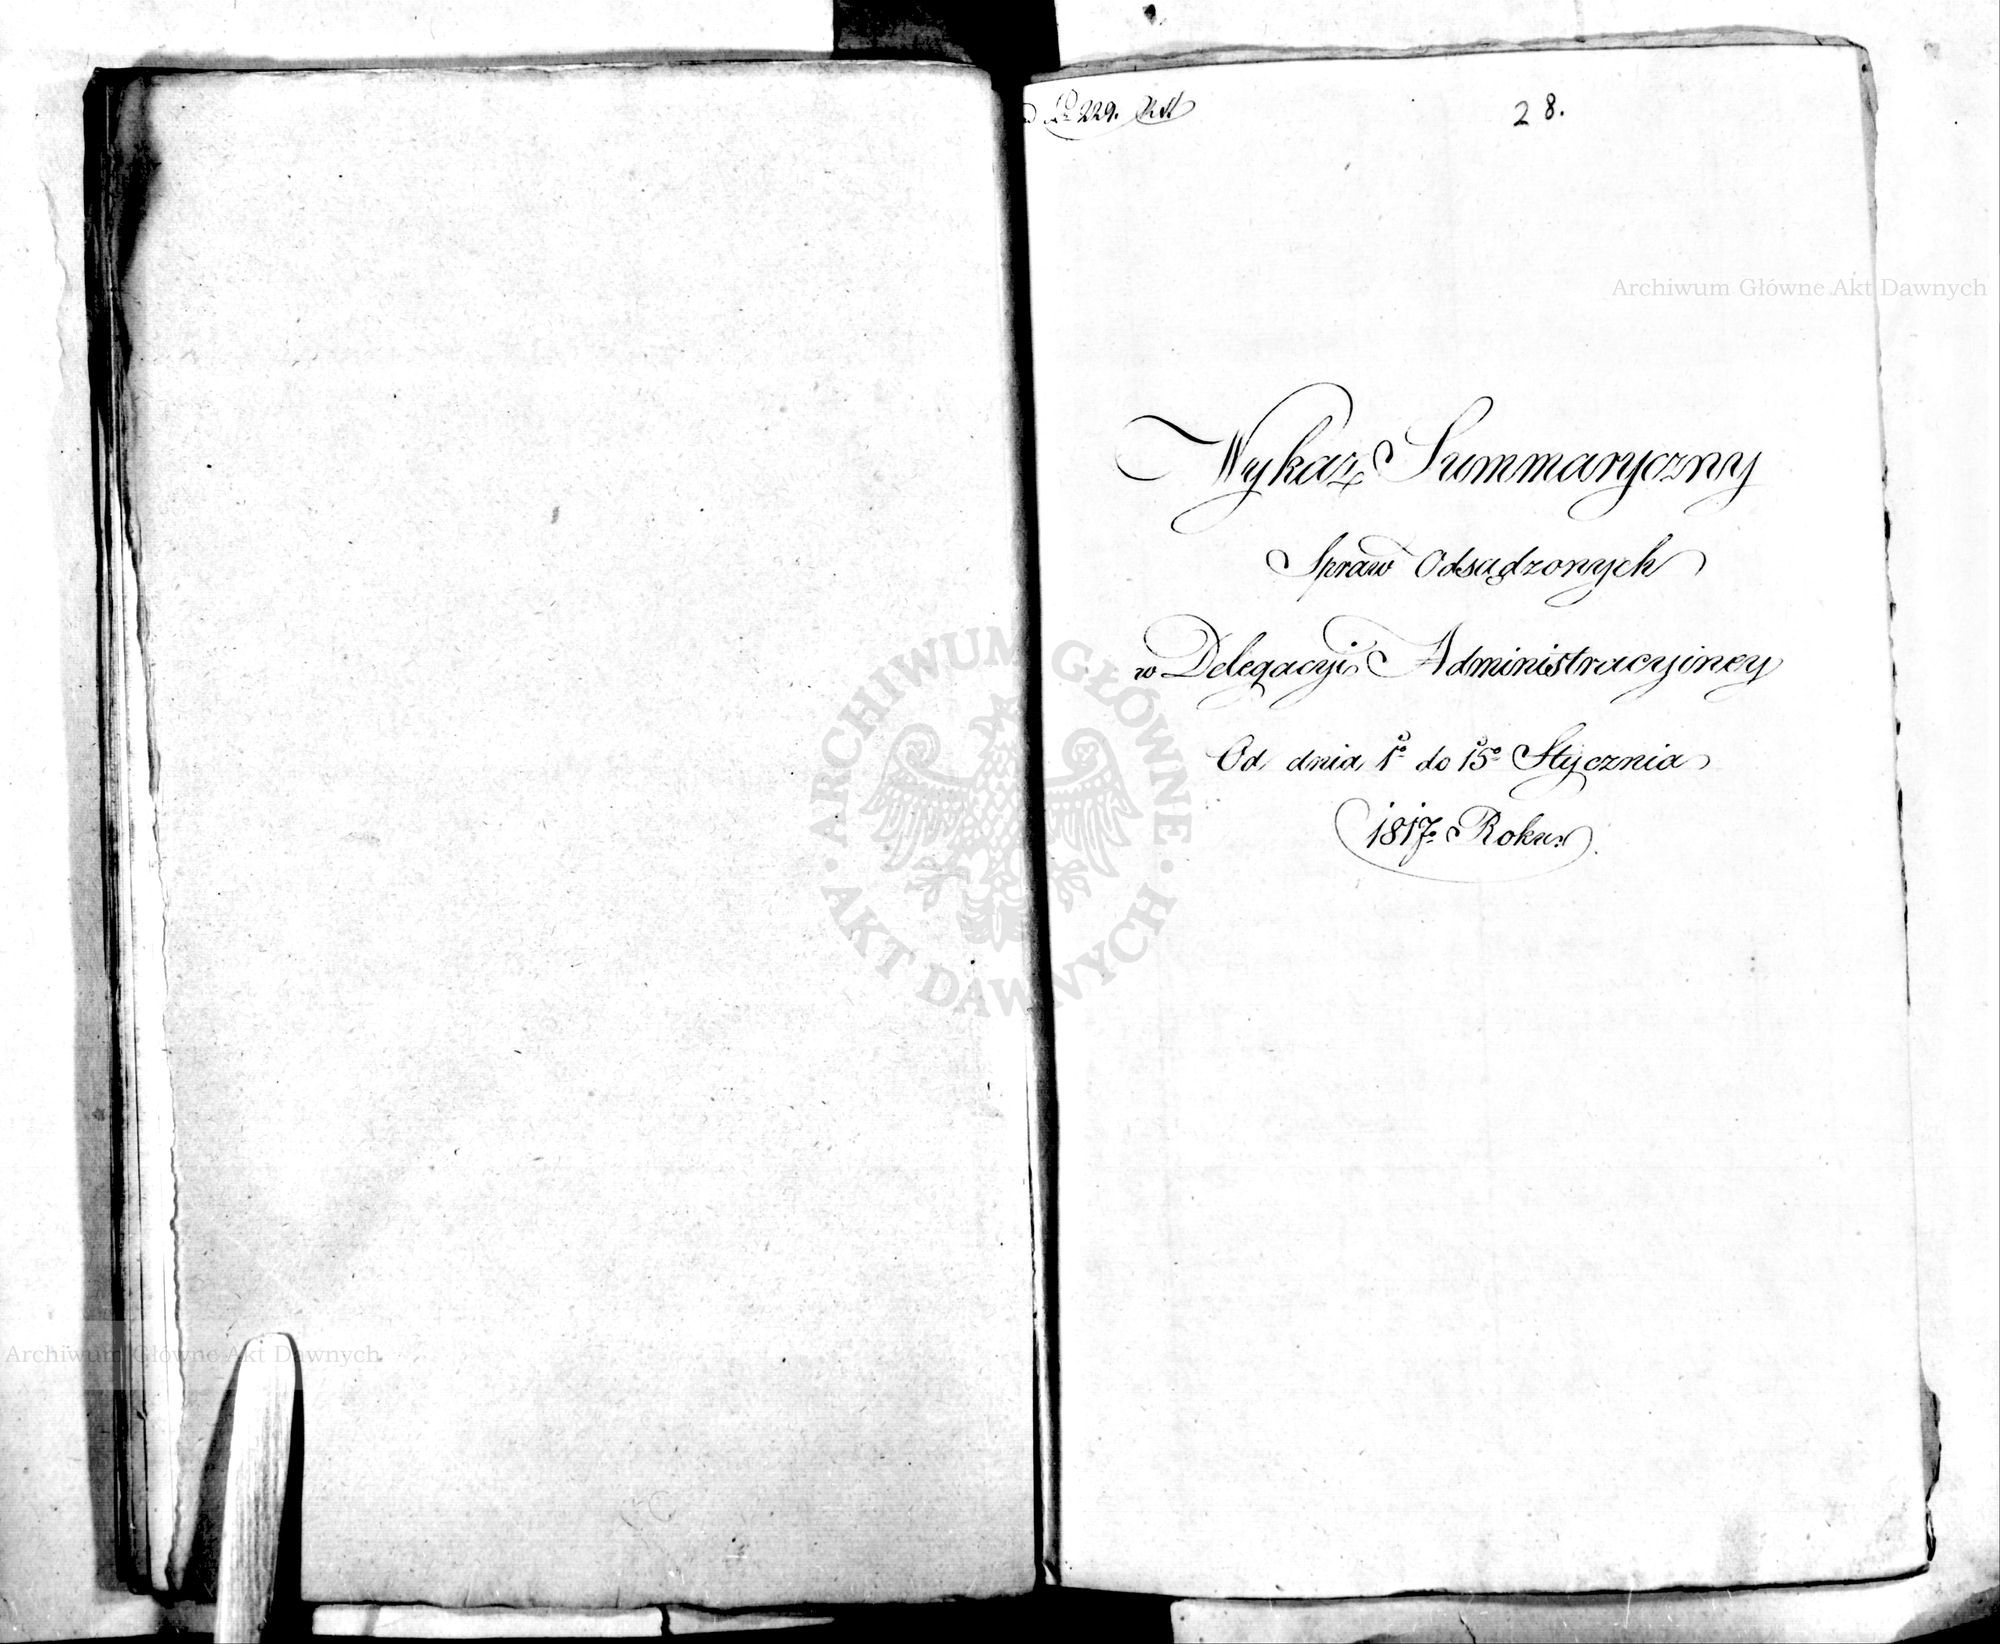 № 229.
28.
Wykaz Summaryczny
Spraw Odsądzonych
w Delegacyi Administracyiney
Od dnia 1º do 15º Stycznia
1817º Roku
Archiwum Główne Akt Dawnych
ARCHIWUM GŁÓWNE · AKT DAWNYCH ·
Archiwum Główne Akt Dawnych